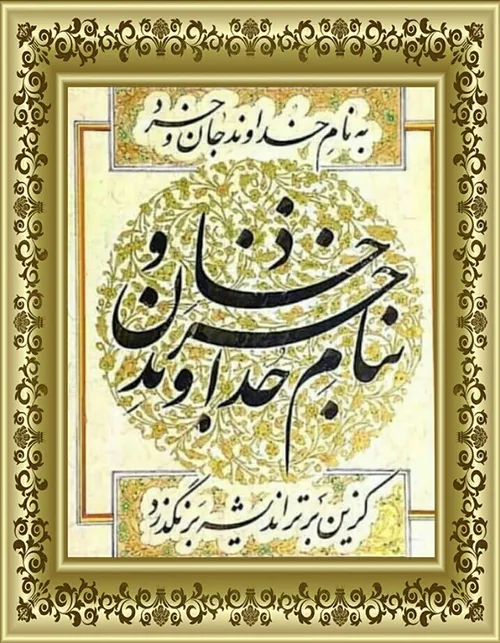 به نامِ خداوند جان و خرد
بنامِ خُداوندِ جان و خرد
کزین برتر اندیشه بَرنگذرد